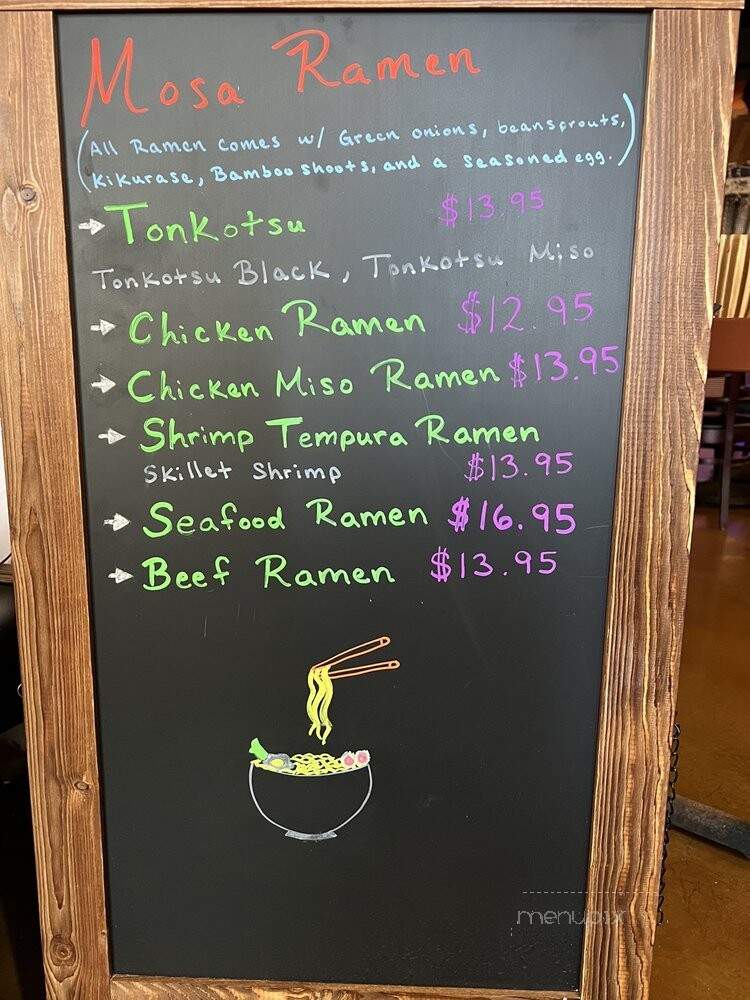 Mosa Ramen
(All Ramen comes w/ Green onions, beansprouts,
Kikurase, Bamboo shoots, and a seasoned egg.)
Tonkotsu $13.95
Tonkotsu Black, Tonkotsu Miso
Chicken Ramen $12.95
Chicken Miso Ramen $13.95
Shrimp Tempura Ramen
Skillet Shrimp $13.95
Seafood Ramen $16.95
Beef Ramen $13.95
menupix